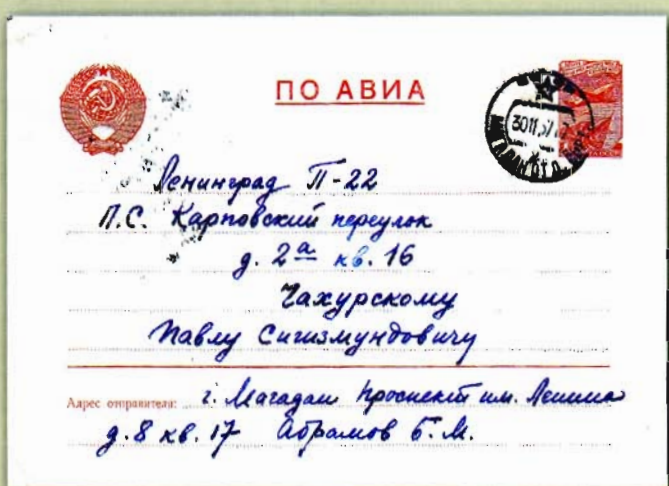 ПО АВИА
30 11 57
Ленинград П-22
П.С. Карповский переулок
д. 2а кв. 16
Чахурскому
Павлу Сигизмундовичу
Адрес отправителя: г. Магадан Проспект им. Ленина
д. 8 кв. 17 Абрамов Б. М.